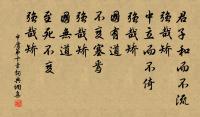 君子和而不流
強哉矯
中立而不倚
強哉矯
國有道
不變塞焉
強哉矯
國無道
至死不變
強哉矯